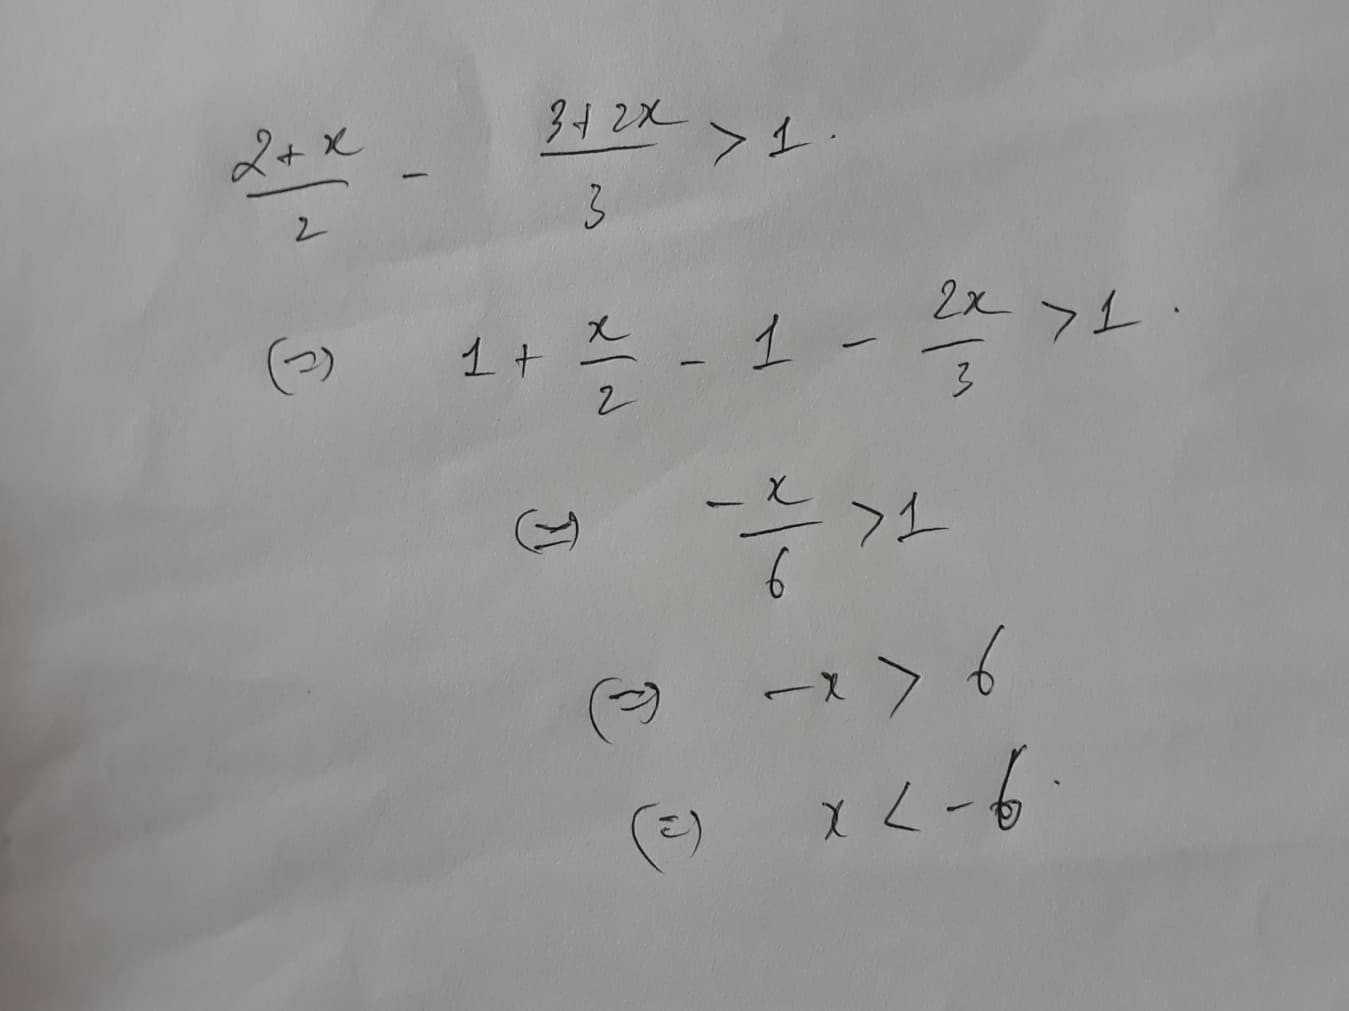 (2+x)/2 - (3+2x)/3 > 1.
(=) 1 + x/2 - 1 - 2x/3 > 1.
(=) -x/6 > 1
(=) -x > 6
(=) x < -6.